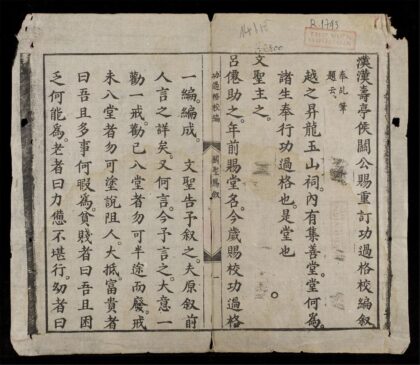 R.1743
漢漢壽亭侯關公賜重訂功過格校編叙
奉乩筆
題云。
越之昇龍玉山祠。內有集善堂。堂何為。
諸生奉行功過格也。是堂也。
文聖主之。
呂僊助之。年前賜堂名。今歲賜校功過格
功過格校編
關聖賜叙
一
一編。編成。文聖告予叙之。夫原叙前
人言之詳矣。又何言。今予言之。大意一
勸一戒。勸已入堂者勿可半途而廢。戒
未入堂者勿可塗說阻人。大抵富貴者
曰吾且多事。何暇為。貧賤者曰吾且困
乏。何能為。老者曰力憊不堪行。幼者曰